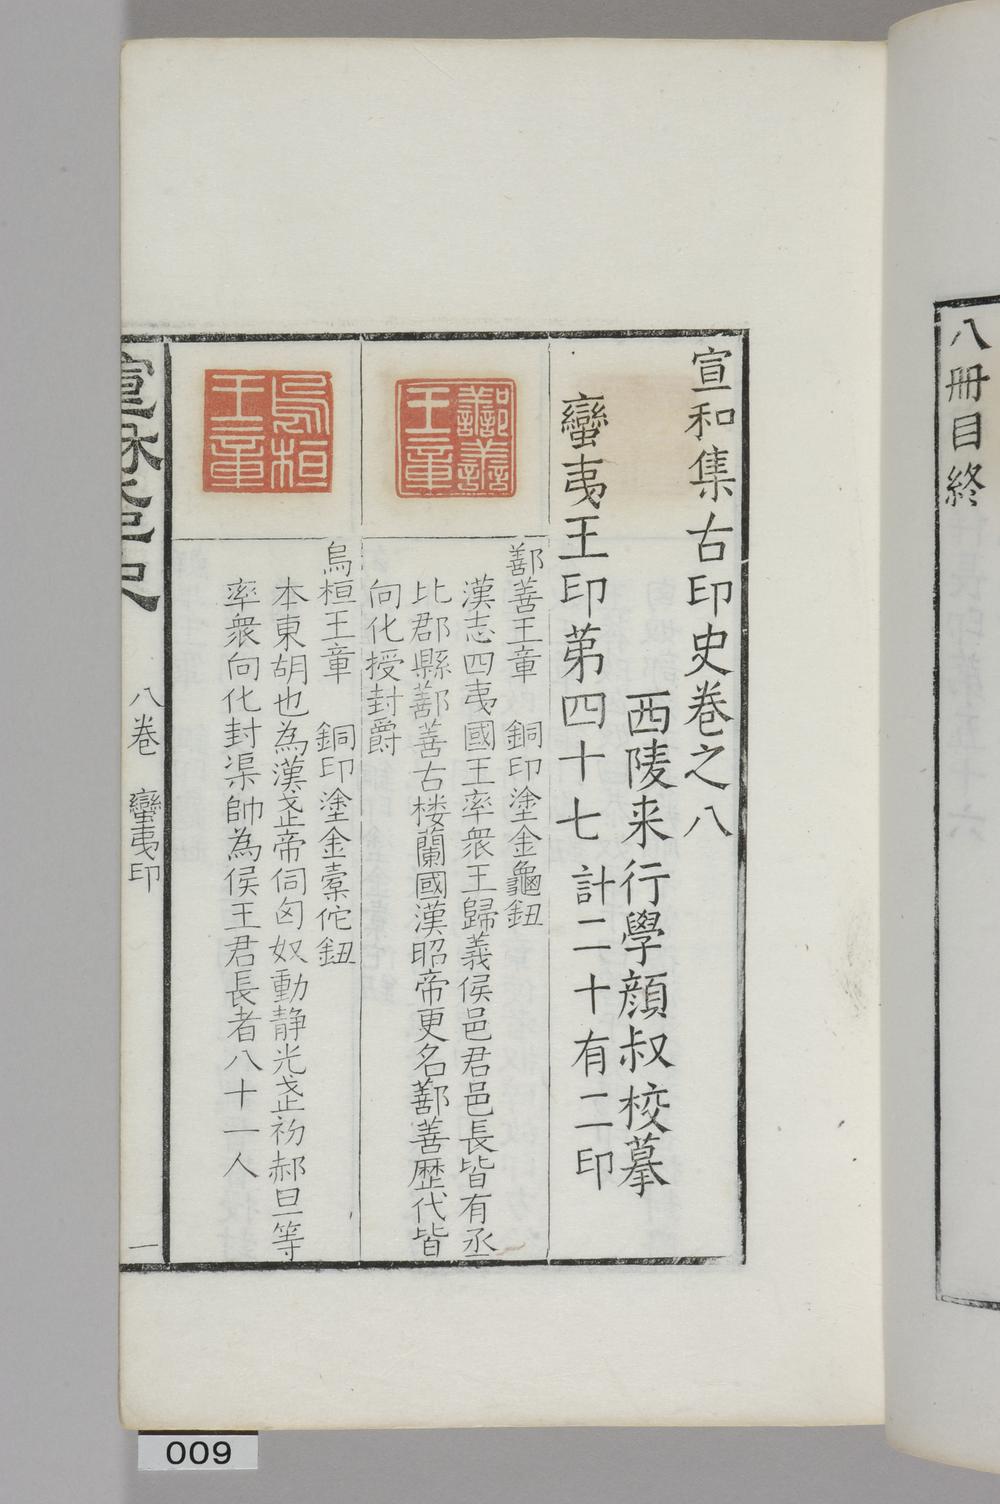 八冊目終
宣和集古印史卷之八
西陵来行學顔叔校摹
蠻夷王印第四十七 計二十有二印
鄯善王章
鄯善王章 銅印塗金龜鈕
漢志四夷國王率衆王歸義侯邑君邑長皆有丞
比郡縣鄯善古楼蘭國漢昭帝更名鄯善歴代皆
向化授封爵
烏桓王章
烏桓王章 銅印塗金橐佗鈕
本東胡也為漢武帝伺匈奴動静光武初郝旦等
率衆向化封渠帥為侯王君長者八十一人
八卷 蠻夷印 一
009